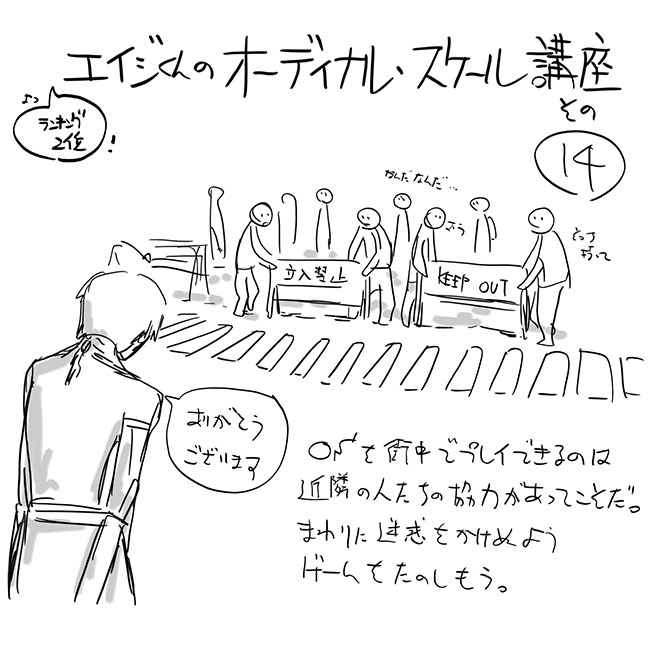 エイジくんのオーディカル・スケール講座
その
14
よっ
ランキング
2位
!
なんだなんだ…
立入禁止
KEEP OUT
そっち
持って
ありがとう
ございます
OSを街中でプレイできるのは
近隣の人たちの協力があってこそだ。
まわりに迷惑をかけぬよう
ゲームをたのしもう。